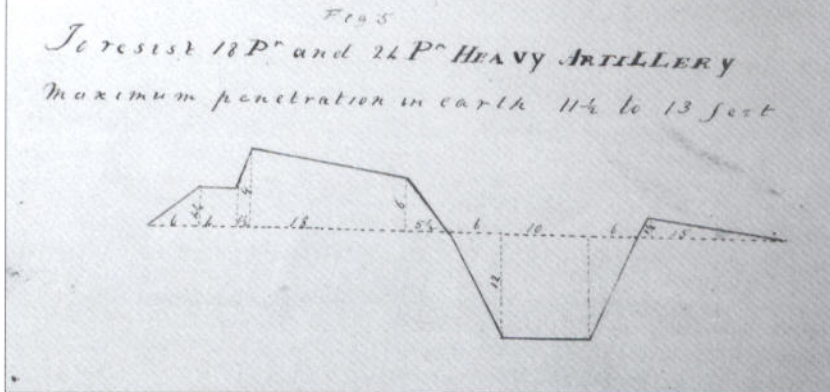 Fig 5
To resist 18 Pr and 24 Pr HEAVY ARTILLERY
Maximum penetration in earth 11½ to 13 feet
6 1½ 18 6 5½ 6 10 6 15
12